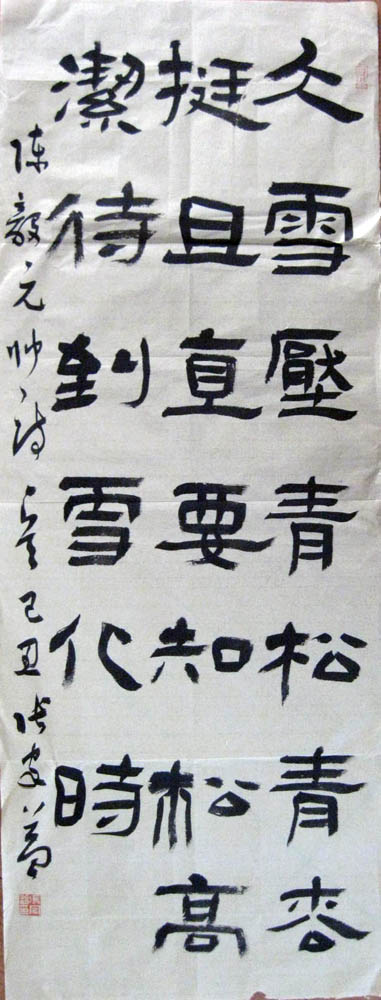 大雪壓青松青枩
挺且直要知松高
潔待到雪化時
陈毅元帅诗 己丑